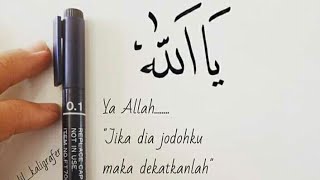 يَا اَللّٰه
Ya Allah.......
"Jika dia jodohku
maka dekatkanlah"
0.1
REPLACE CAP
NOT IN USE
kaligrafer